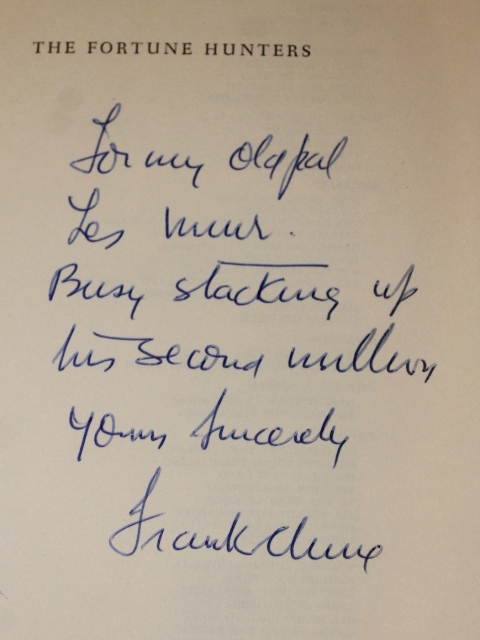 THE FORTUNE HUNTERS
For my old pal
Les Muir.
Busy stacking up
his second million
Yours Sincerely
Frank Clune